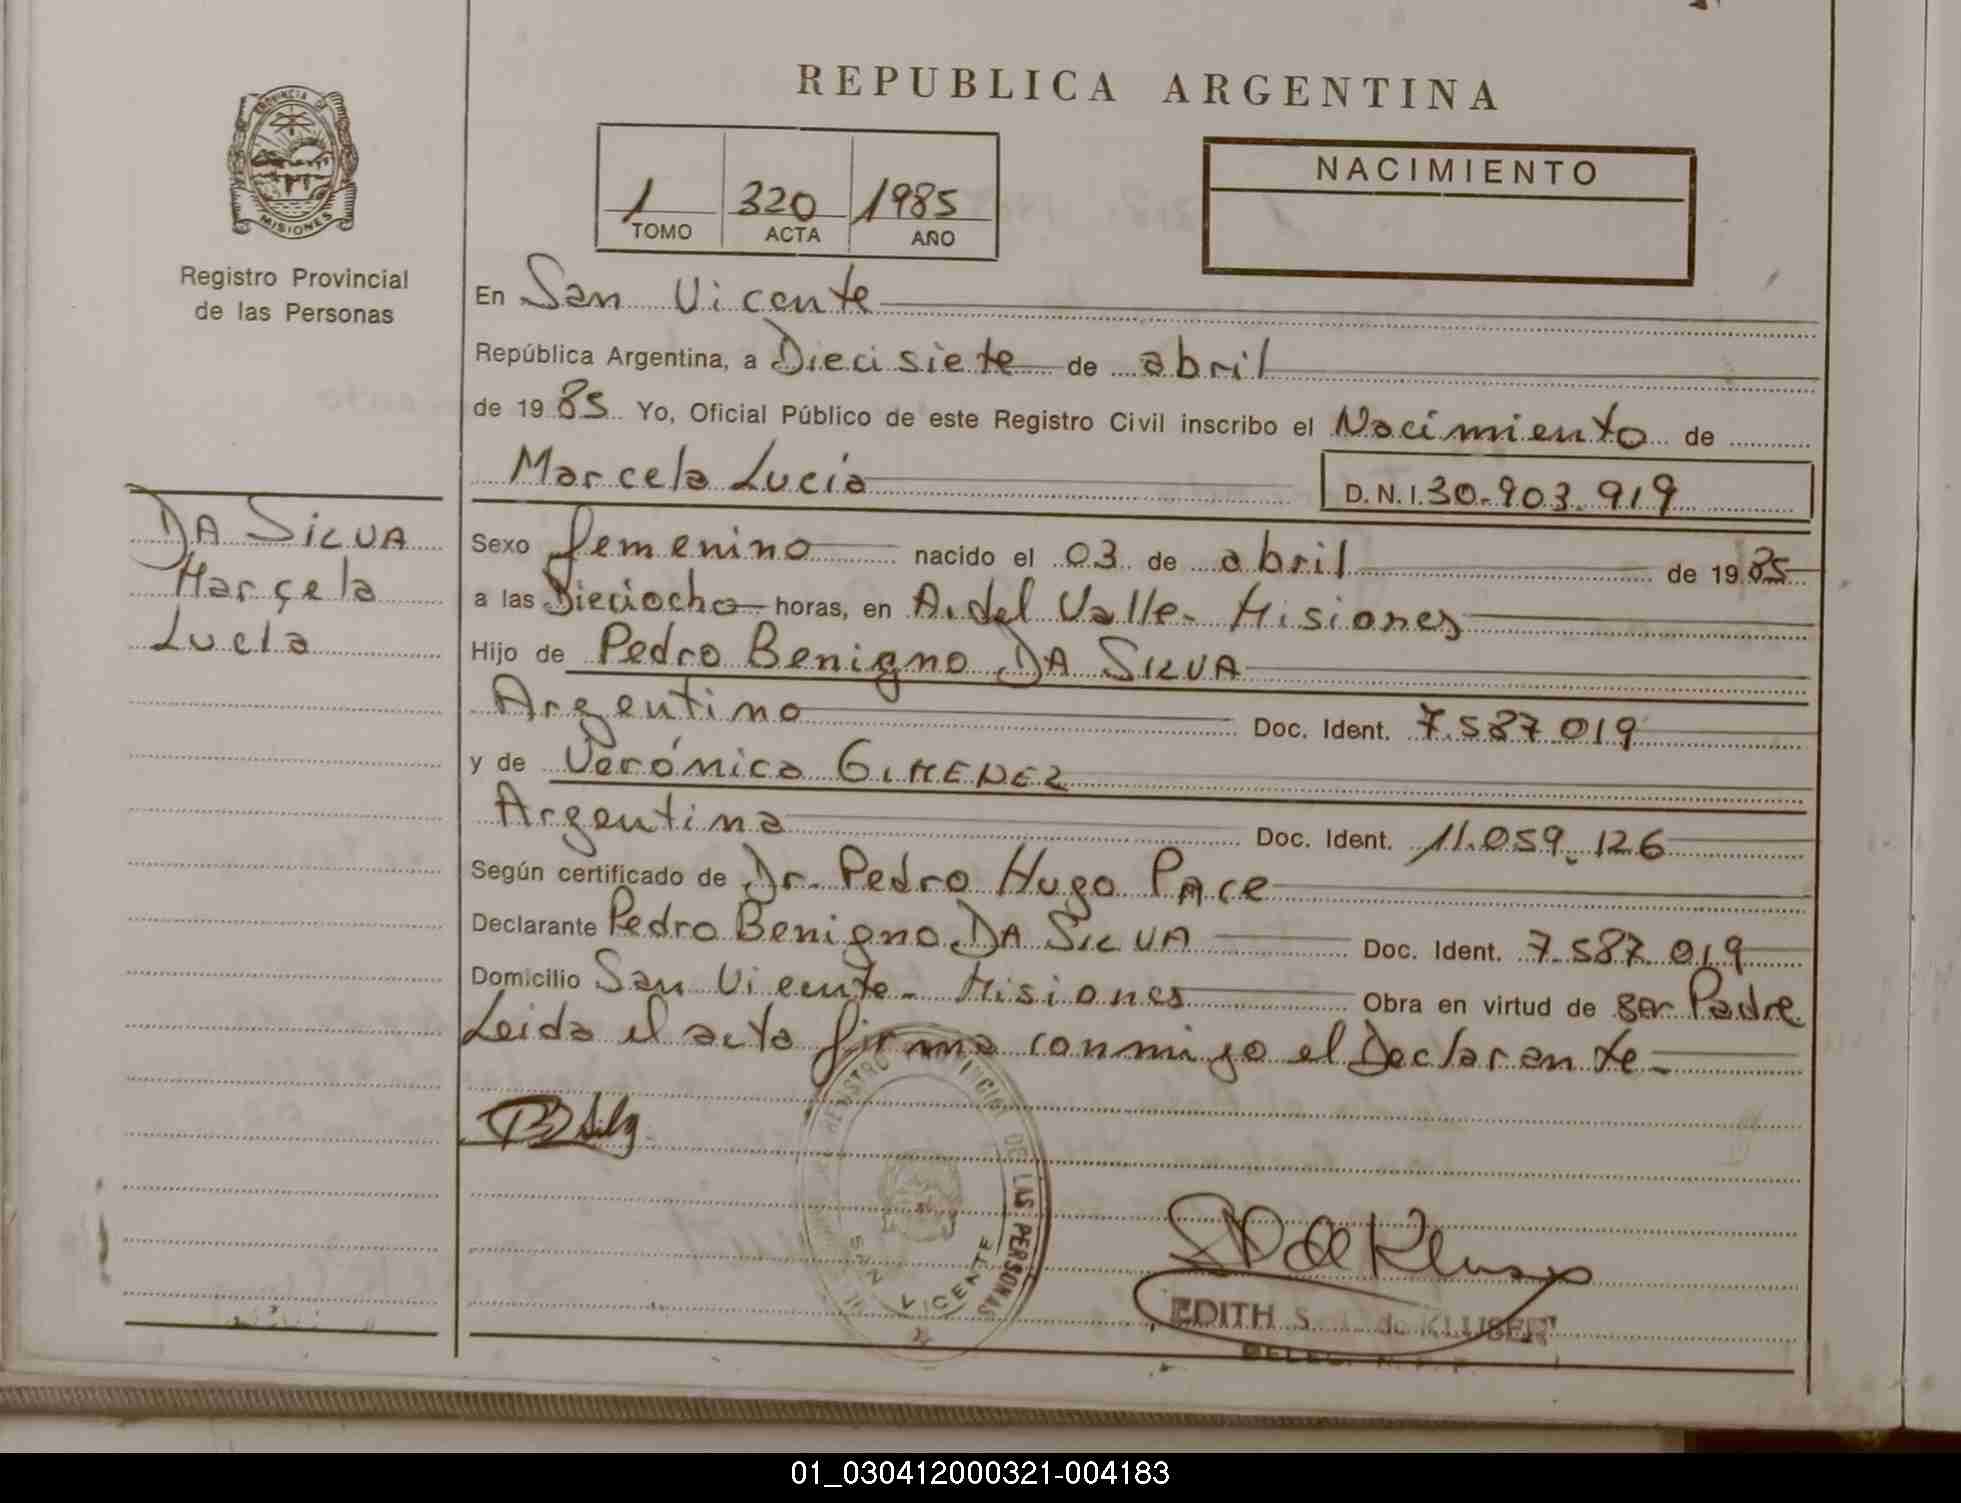 REPUBLICA ARGENTINA
PROVINCIA DE
MISIONES
Registro Provincial
de las Personas
1 320 1985
TOMO ACTA AÑO
NACIMIENTO
En San Vicente
República Argentina, a Diecisiete de abril
de 1985 Yo, Oficial Público de este Registro Civil inscribo el Nacimiento de
Marcela Lucía D.N.I. 30.903.919
DA SILVA
Marcela
Lucía
Sexo femenino nacido el 03 de abril de 1985
a las Dieciocho horas, en A. del Valle - Misiones
Hijo de Pedro Benigno DA SILVA
Argentino Doc. Ident. 7.587.019
y de Verónica GIMENEZ
Argentina Doc. Ident. 11.059.126
Según certificado de Dr. Pedro Hugo Pace
Declarante Pedro Benigno DA SILVA Doc. Ident. 7.587.019
Domicilio San Vicente - Misiones Obra en virtud de ser Padre
Leida el acta firma conmigo el Declarante -
REGISTRO PROVINCIAL DE LAS PERSONAS
SAN VICENTE
EDITH S de KLUSER
01_030412000321-004183